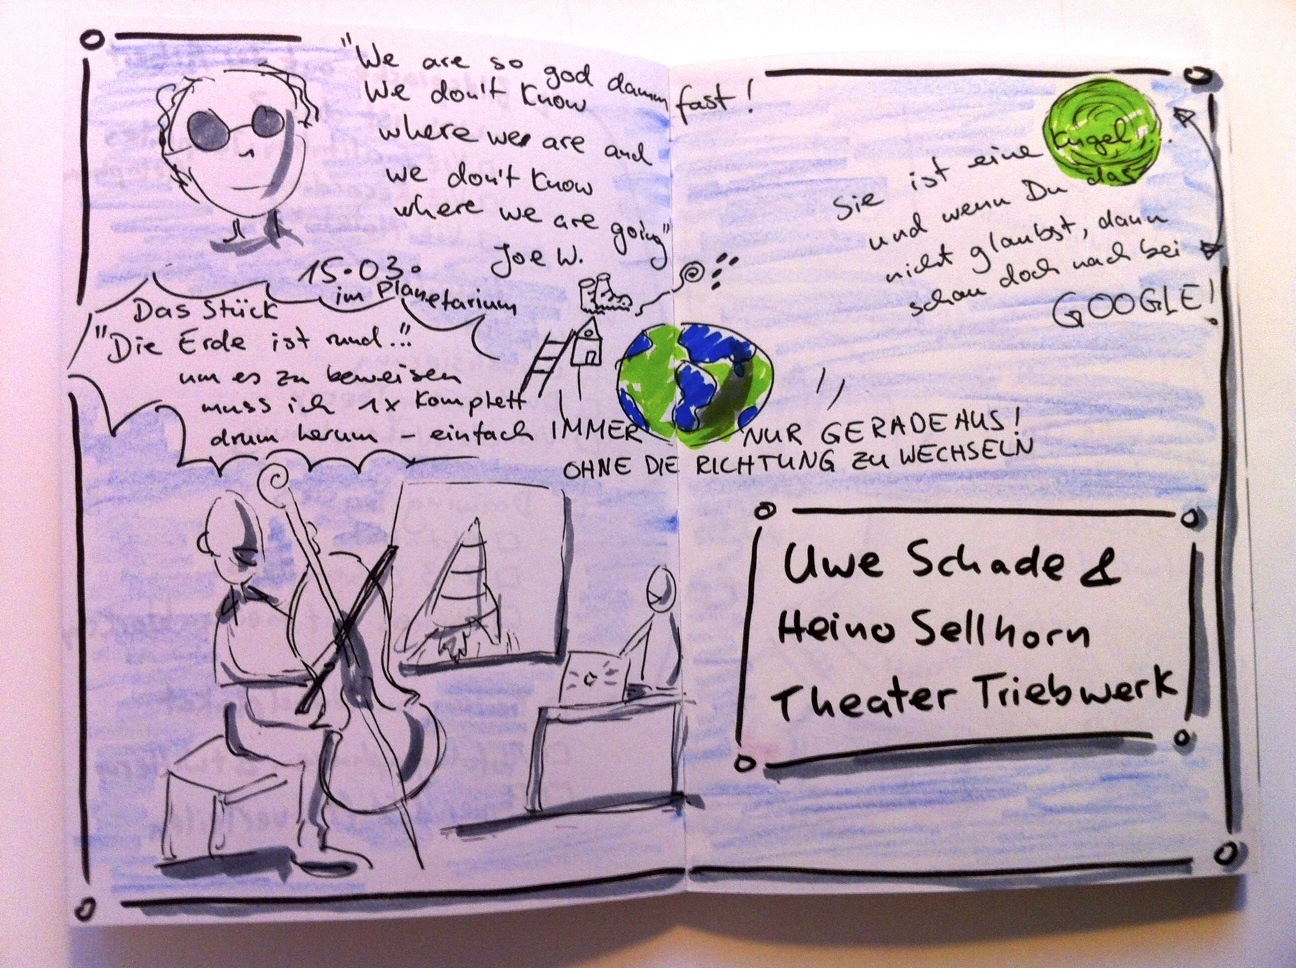 "We are so god damn fast!
We don't know
where we are and
we don't know
where we are going"
Joe W.
15.03.
im Planetarium
Das Stück
"Die Erde ist rund..."
um es zu beweisen
muss ich 1x komplett
drum herum – einfach IMMER NUR GERADEAUS!
OHNE DIE RICHTUNG ZU WECHSELN
Sie ist eine Kugel...
und wenn Du das
nicht glaubst, dann
schau doch nach bei
GOOGLE!
Uwe Schade &
Heino Sellhorn
Theater Triebwerk